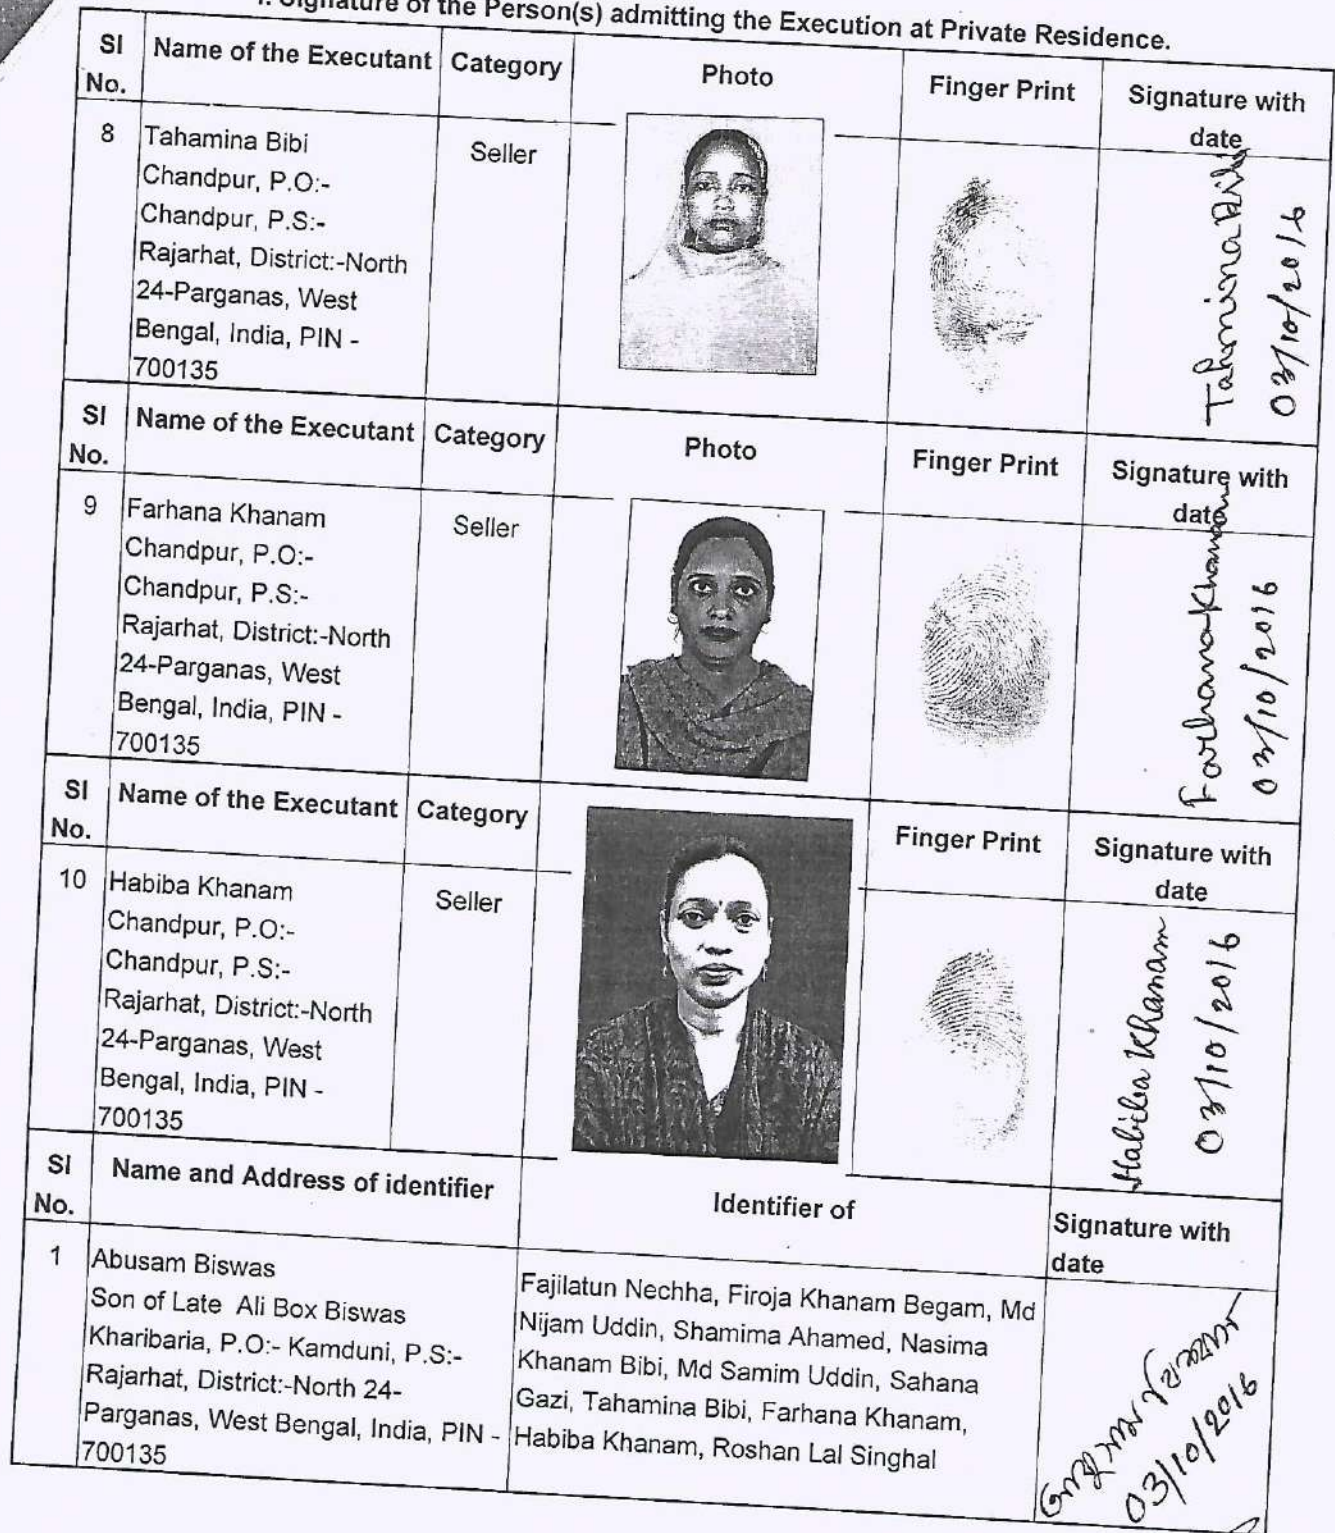 I. Signature of the Person(s) admitting the Execution at Private Residence.
Sl No.
Name of the Executant
Category
Photo
Finger Print
Signature with date
8
Tahamina Bibi
Chandpur, P.O:-
Chandpur, P.S:-
Rajarhat, District:-North
24-Parganas, West
Bengal, India, PIN -
700135
Seller
Tahmina Bibi
03/10/2016
Sl No.
Name of the Executant
Category
Photo
Finger Print
Signature with date
9
Farhana Khanam
Chandpur, P.O:-
Chandpur, P.S:-
Rajarhat, District:-North
24-Parganas, West
Bengal, India, PIN -
700135
Seller
Farhana Khanam
03/10/2016
Sl No.
Name of the Executant
Category
Finger Print
Signature with date
10
Habiba Khanam
Chandpur, P.O:-
Chandpur, P.S:-
Rajarhat, District:-North
24-Parganas, West
Bengal, India, PIN -
700135
Seller
Habiba Khanam
03/10/2016
Sl No.
Name and Address of identifier
Identifier of
Signature with date
1
Abusam Biswas
Son of Late Ali Box Biswas
Kharibaria, P.O:- Kamduni, P.S:-
Rajarhat, District:-North 24-
Parganas, West Bengal, India, PIN -
700135
Fajilatun Nechha, Firoja Khanam Begam, Md
Nijam Uddin, Shamima Ahamed, Nasima
Khanam Bibi, Md Samim Uddin, Sahana
Gazi, Tahamina Bibi, Farhana Khanam,
Habiba Khanam, Roshan Lal Singhal
03/10/2016